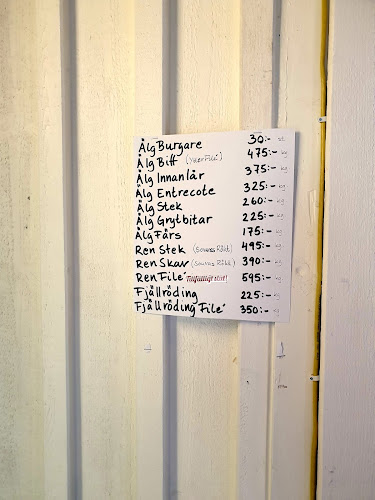 Älg Burgare 30:- st
Älg Biff (Ytterfilé) 475:- kg
Älg Innanlår 375:- kg
Älg Entrecote 325:- kg
Älg Stek 260:- kg
Älg Grytbitar 225:- kg
Älg Färs 175:- kg
Ren Stek (Souvas Rökt) 495:- kg
Ren Skav (Souvas Rökt) 390:- kg
Ren Filé Tillfälligt slut! 595:- kg
Fjällröding 225:- kg
Fjällröding Filé 350:- kg